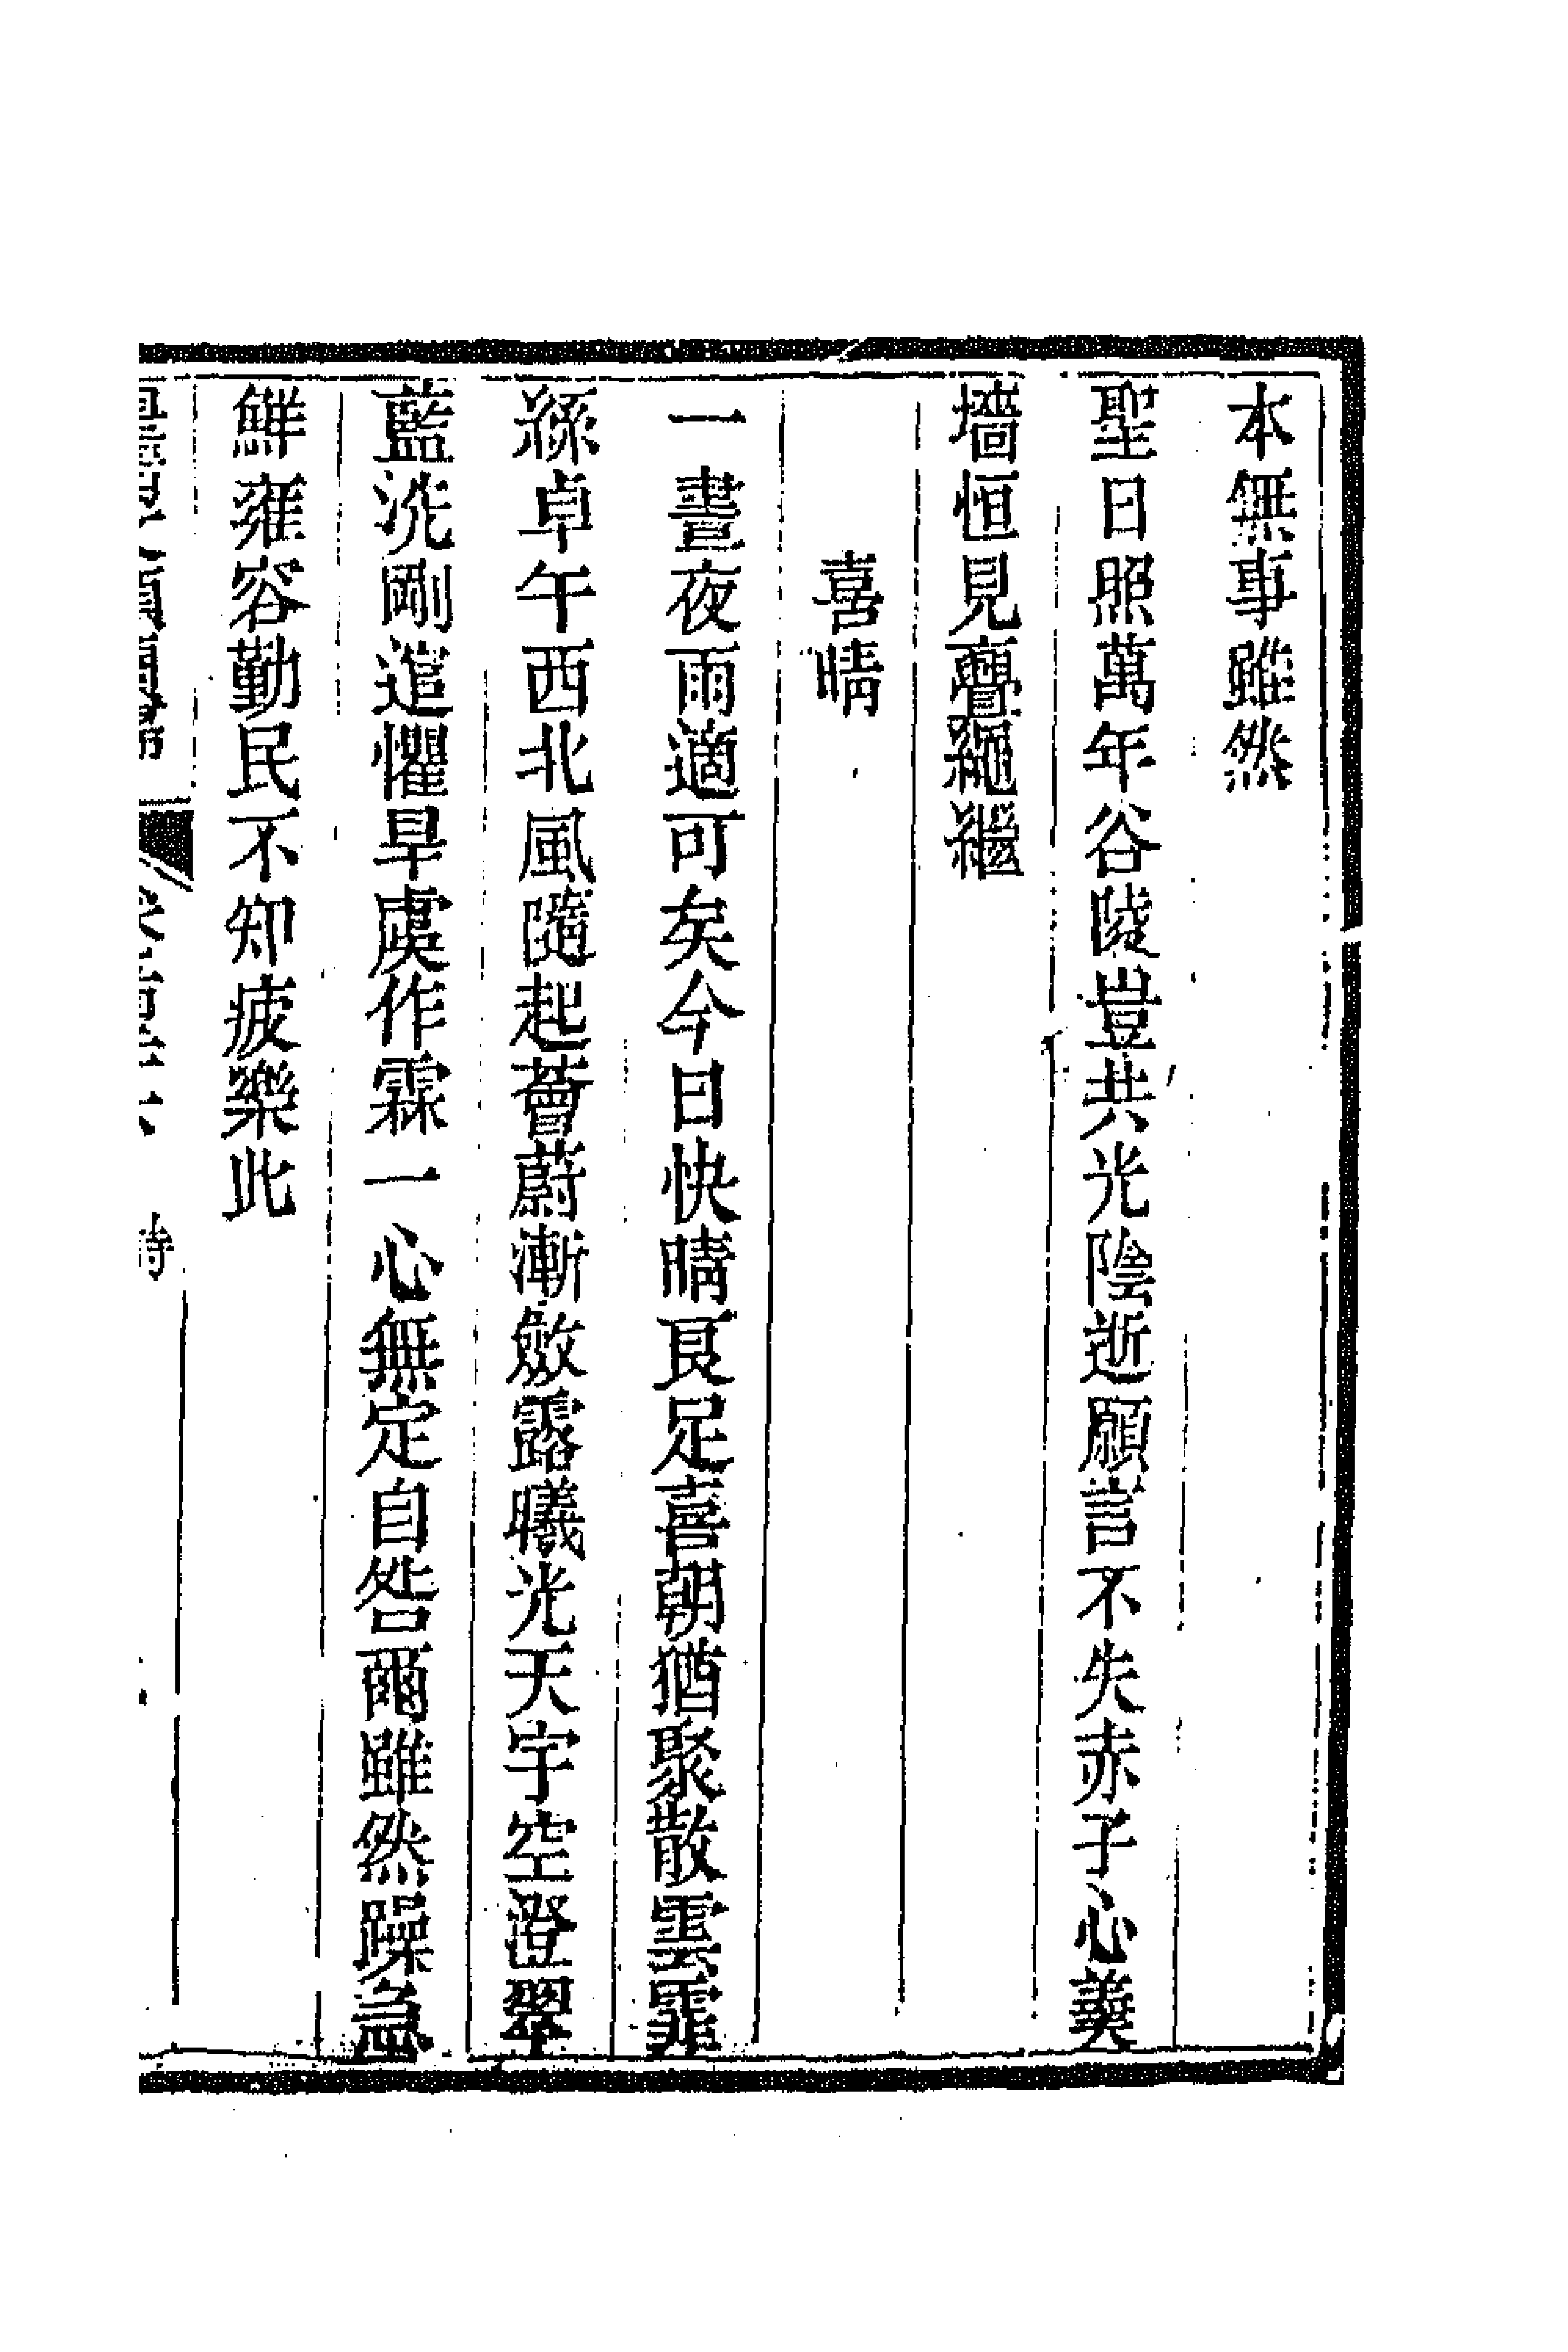 本無事雖然
聖日照萬年谷陵豈共光陰逝願言不失赤子心羹
墻恒見亹繩繼
喜晴
一晝夜雨適可矣今日快晴良足喜朝猶聚散雲霏
絲卓午西北風隨起薈蔚漸斂露曦光天宇空澄翠
藍洗剛遣懼旱虞作霖一心無定自咎爾雖然躁急
鮮雍容勤民不知疲樂此
詩